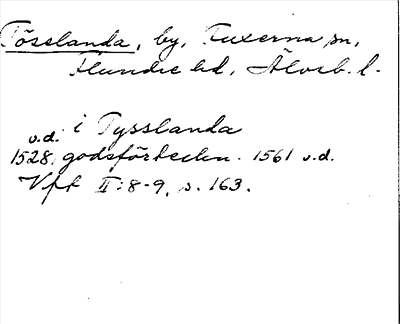 Tösslanda, by, Tuxerna sn,
Flundre hd, Älvsb. l.
i Tysslanda
u.d.
1528. godsförteckn. 1561 u.d.
Vft II:8-9, s. 163.